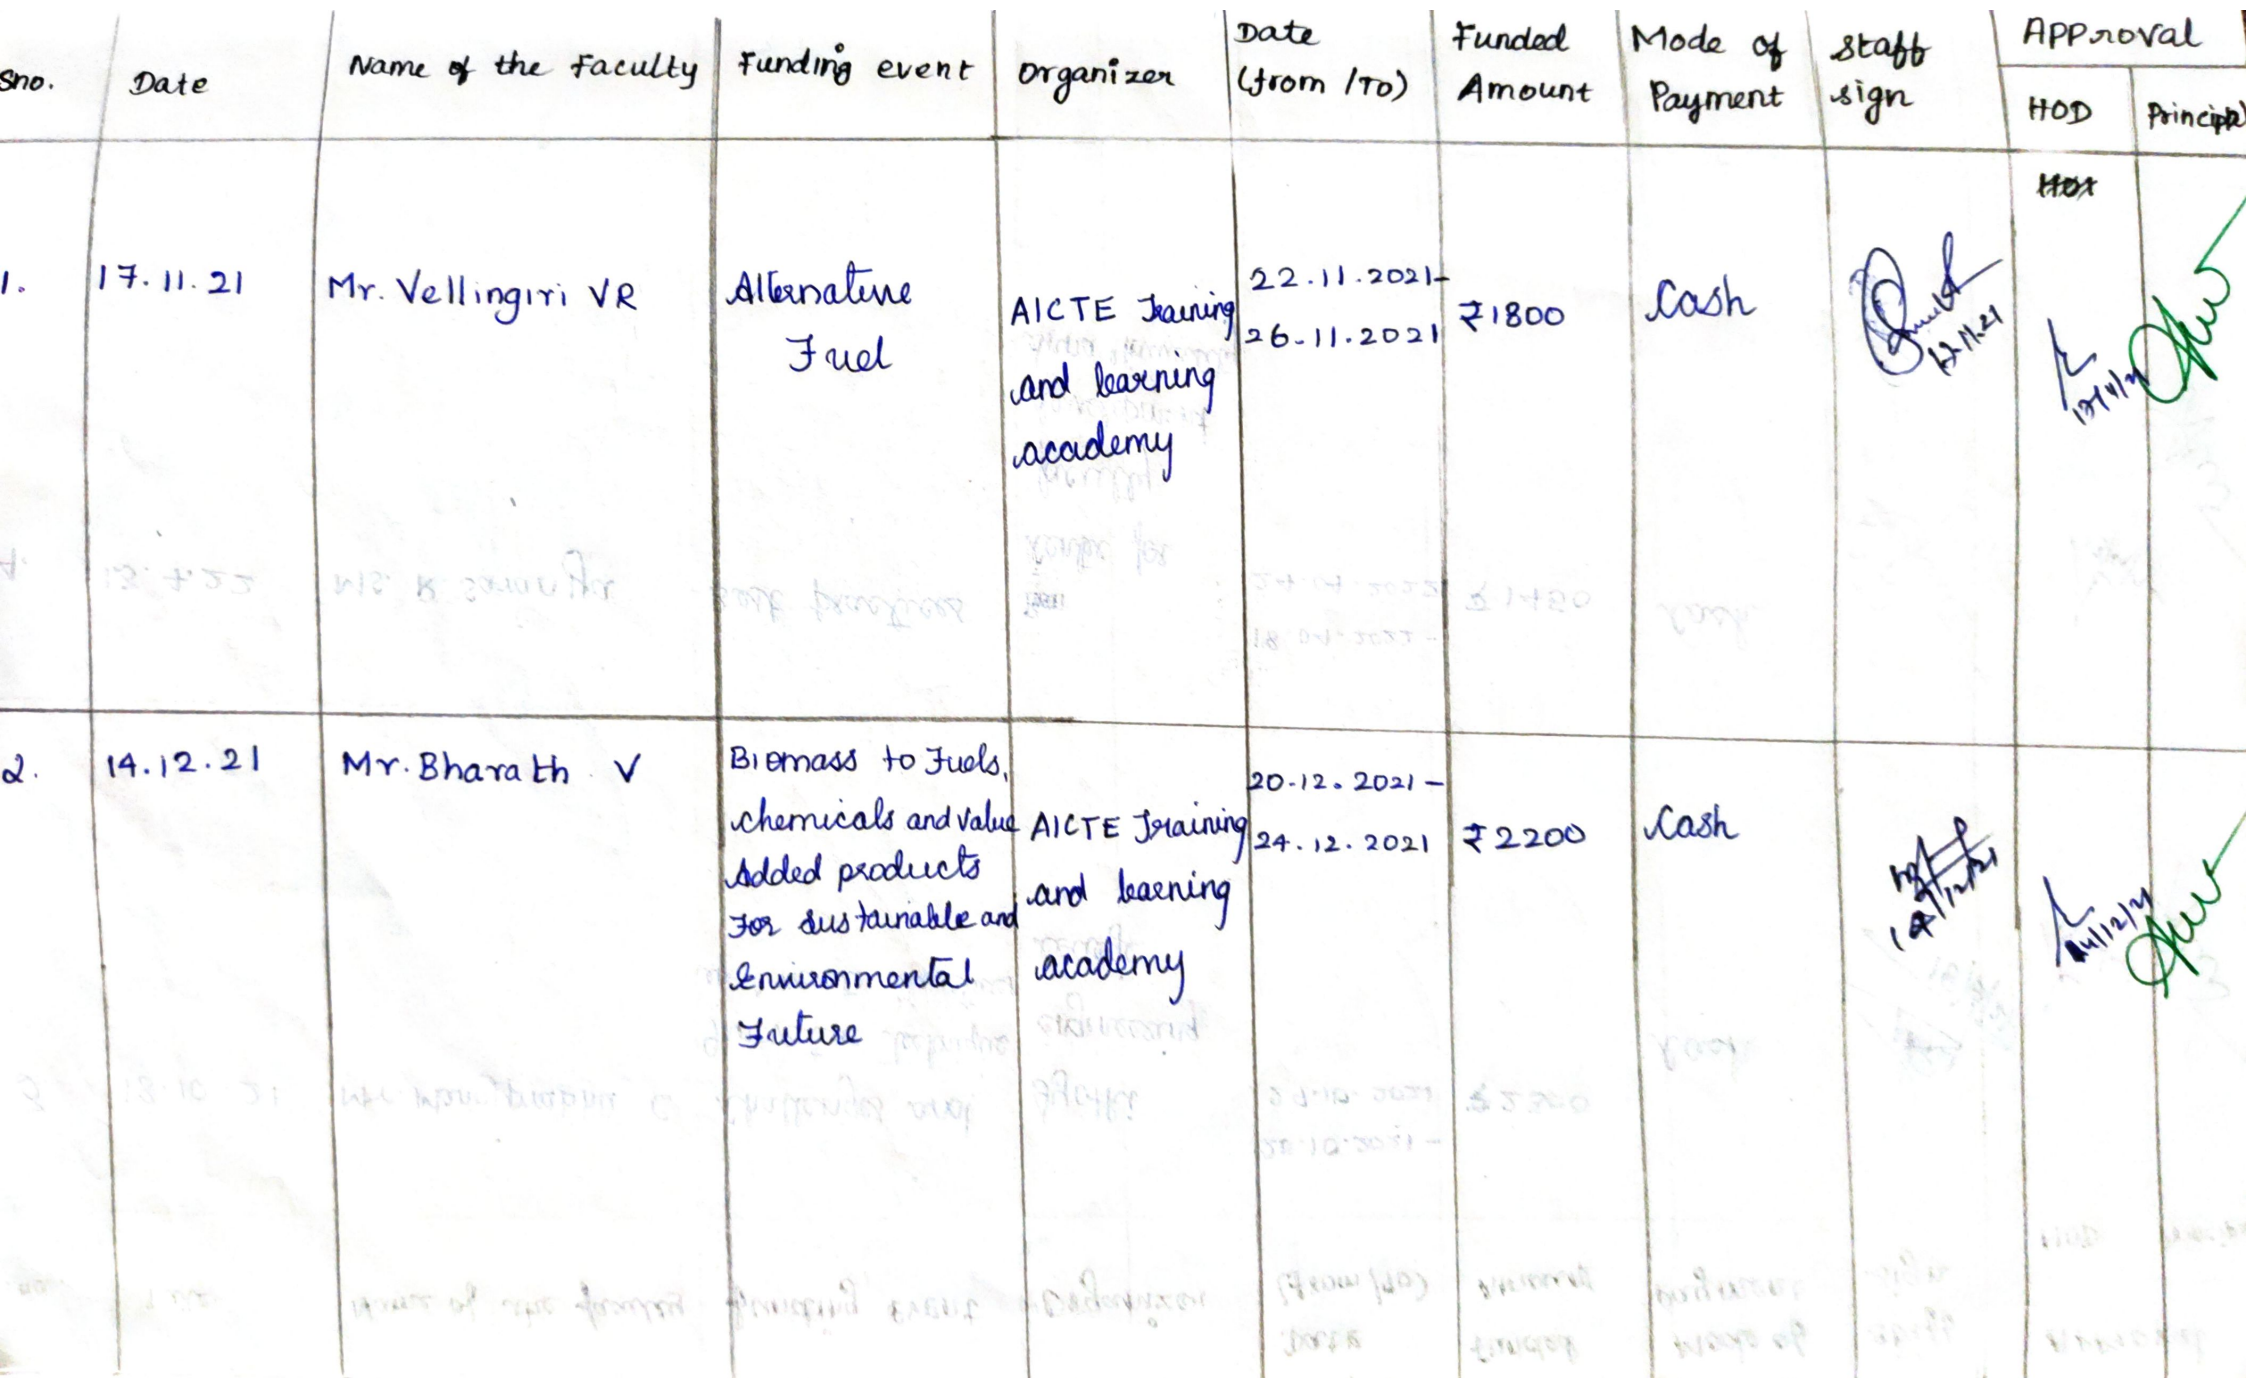 Sno.
Date
Name of the Faculty
Funding event
Organizer
Date
(from /To)
Funded
Amount
Mode of
Payment
Staff
sign
Approval
HOD
Principal
1.
17.11.21
Mr. Vellingiri VR
Alternative
Fuel
AICTE Training
and learning
academy
22.11.2021-
26-11.2021
₹1800
Cash
17.11.21
17/11/21
2.
14.12.21
Mr. Bharath V
Biomass to Fuels,
chemicals and value
Added products
For sustainable and
Environmental
Future
AICTE Training
and learning
academy
20-12.2021-
24.12.2021
₹2200
Cash
14/12/21
14/12/21